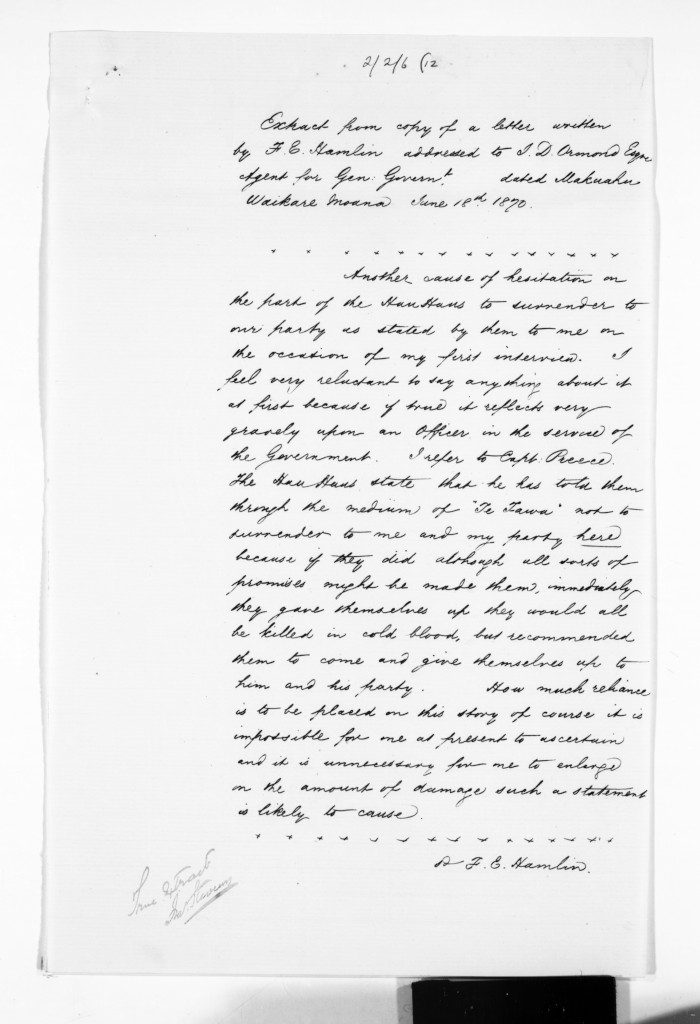 2/2/6 (12
Extract from copy of a letter written
by F. E. Hamlin addressed to J. D. Ormond Esqre
Agent for Gen: Governt. dated Makuahu
Waikare Moana June 18th 1870.
x x x x x x x x x x x x x
Another cause of hesitation on
the part of the HauHaus to surrender to
our party as stated by them to me on
the occasion of my first interview. I
feel very reluctant to say anything about it
at first because if true it reflects very
gravely upon an Officer in the service of
the Government. I refer to Capt: Preece.
The Hau Haus state that he has told them
through the medium of "Te Tawa" not to
surrender to me and my party here
because if they did although all sorts of
promises might be made them, immediately
they gave themselves up they would all
be killed in cold blood, but recommended
them to come and give themselves up to
him and his party. How much reliance
is to be placed on this story of course it is
impossible for me at present to ascertain
and it is unnecessary for me to enlarge
on the amount of damage such a statement
is likely to cause.
x x x x x x x x x x x x x
F. E. Hamlin.
True Extract